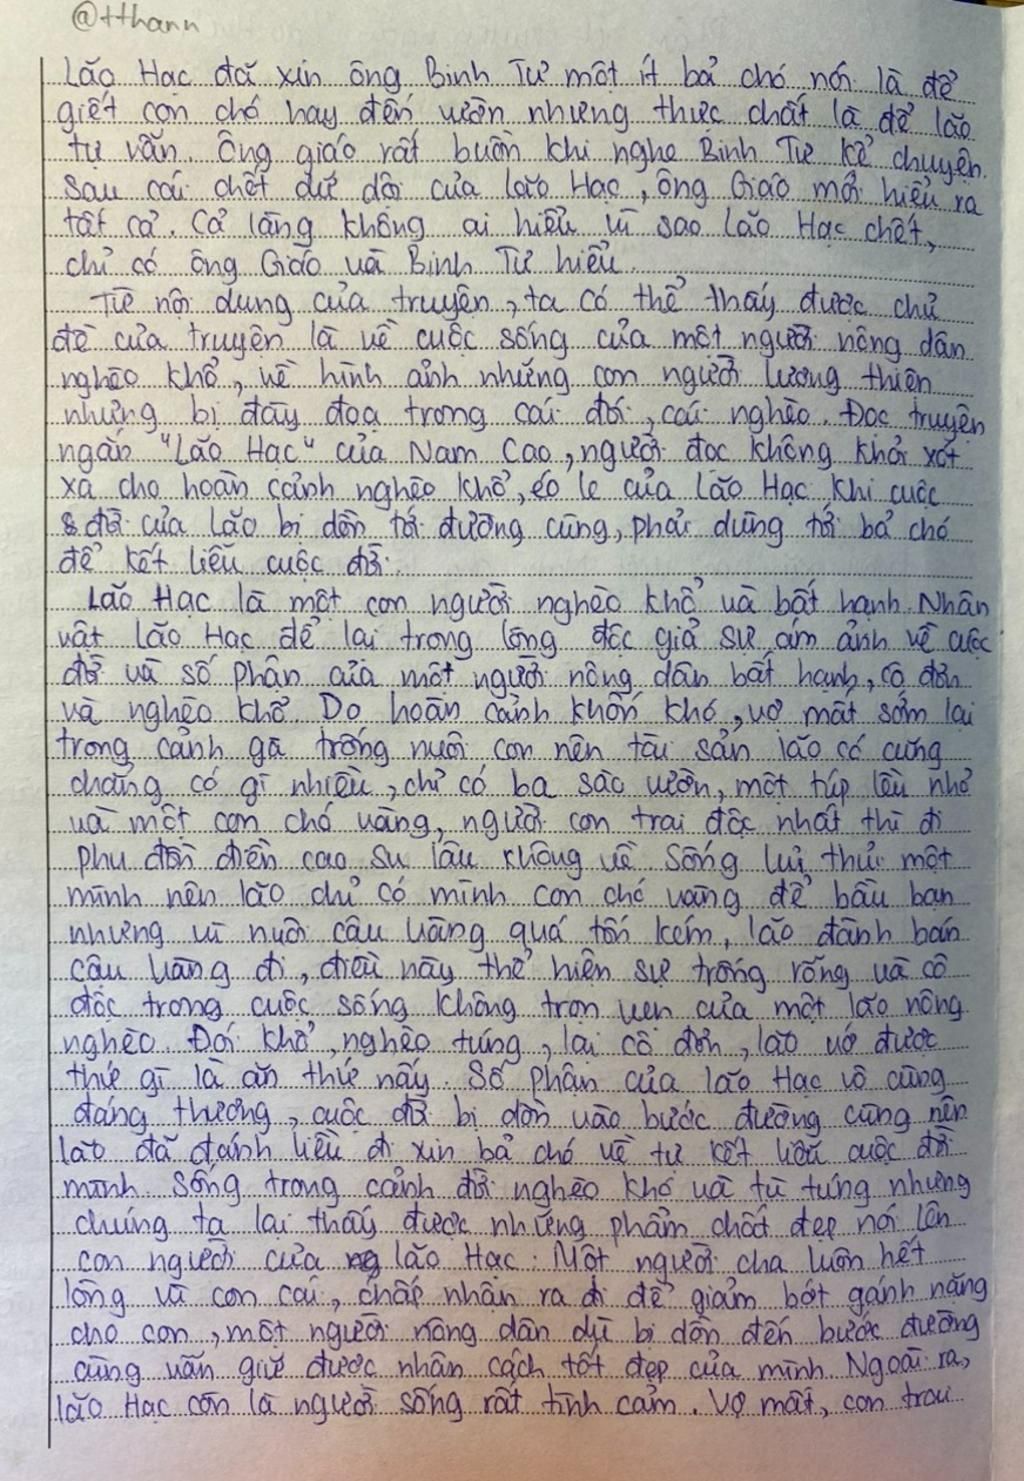 @tthann
Lão Hạc đã xin ông Binh Tư một ít bả chó nói là để
giết con chó hay đến vườn nhưng thực chất là để lão
tự vẫn. Ông giáo rất buồn khi nghe Binh Tư kể chuyện.
Sau cái chết dữ dội của lão Hạc, ông Giáo mới hiểu ra
tất cả. Cả làng không ai hiểu vì sao lão Hạc chết,
chỉ có ông Giáo và Binh Tư hiểu.
Từ nội dung của truyện, ta có thể thấy được chủ
đề của truyện là về cuộc sống của một người nông dân
nghèo khổ, về hình ảnh những con người lương thiện
nhưng bị đày đọa trong cái đói, cái nghèo. Đọc truyện
ngắn "Lão Hạc" của Nam Cao, người đọc không khỏi xót
xa cho hoàn cảnh nghèo khổ, éo le của lão Hạc khi cuộc
đời của lão bị dồn tới đường cùng, phải dùng tới bả chó
để kết liễu cuộc đời.
Lão Hạc là một con người nghèo khổ và bất hạnh. Nhân
vật lão Hạc để lại trong lòng độc giả sự ám ảnh về cuộc
đời và số phận của một người nông dân bất hạnh, cô đơn
và nghèo khổ. Do hoàn cảnh khốn khó, vợ mất sớm lại
trong cảnh gà trống nuôi con nên tài sản lão có cũng
chẳng có gì nhiều, chỉ có ba sào vườn, một túp lều nhỏ
và một con chó vàng, người con trai độc nhất thì đi
phu đồn điền cao su lâu không về. Sống lủi thủi một
mình nên lão chỉ có mình con chó vàng để bầu bạn
nhưng vì nuôi cậu Vàng quá tốn kém, lão đành bán
cậu Vàng đi, điều này thể hiện sự trống rỗng và cô
độc trong cuộc sống không trọn vẹn của một lão nông
nghèo. Đói khổ, nghèo túng, lại cô đơn, lão vớ được
thứ gì là ăn thứ nấy. Số phận của lão Hạc vô cùng
đáng thương, cuộc đời bị dồn vào bước đường cùng nên
lão đã đánh liều đi xin bả chó về tự kết liễu cuộc đời
mình. Sống trong cảnh đời nghèo khó và tù túng nhưng
chúng ta lại thấy được những phẩm chất đẹp nơi lên
con người của lão Hạc: Một người cha luôn hết
lòng vì con cái, chấp nhận ra đi để giảm bớt gánh nặng
cho con, một người nông dân dù bị dồn đến bước đường
cùng vẫn giữ được nhân cách tốt đẹp của mình. Ngoài ra,
lão Hạc còn là người sống rất tình cảm. Vợ mất, con trai